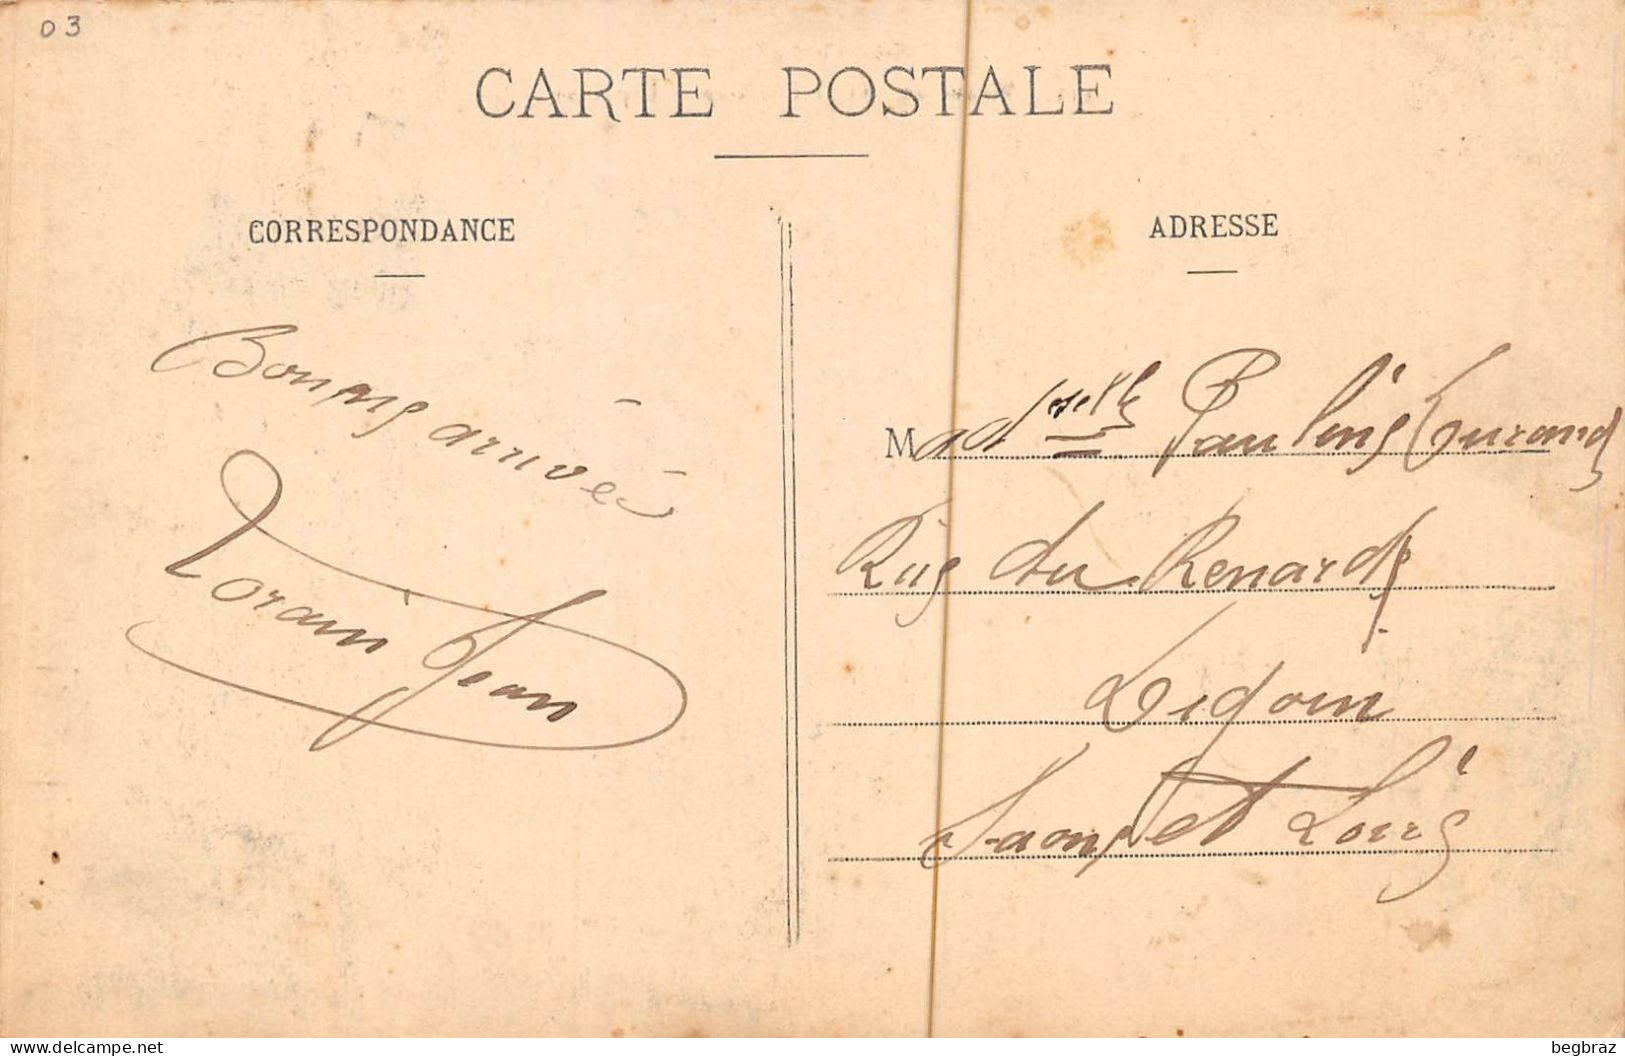 03
CARTE POSTALE
CORRESPONDANCE
Bonne arrivée
Lorain Jean
ADRESSE
Madselle Pauline
Rue du Renard
Digoin
Saone et Loire
begbraz